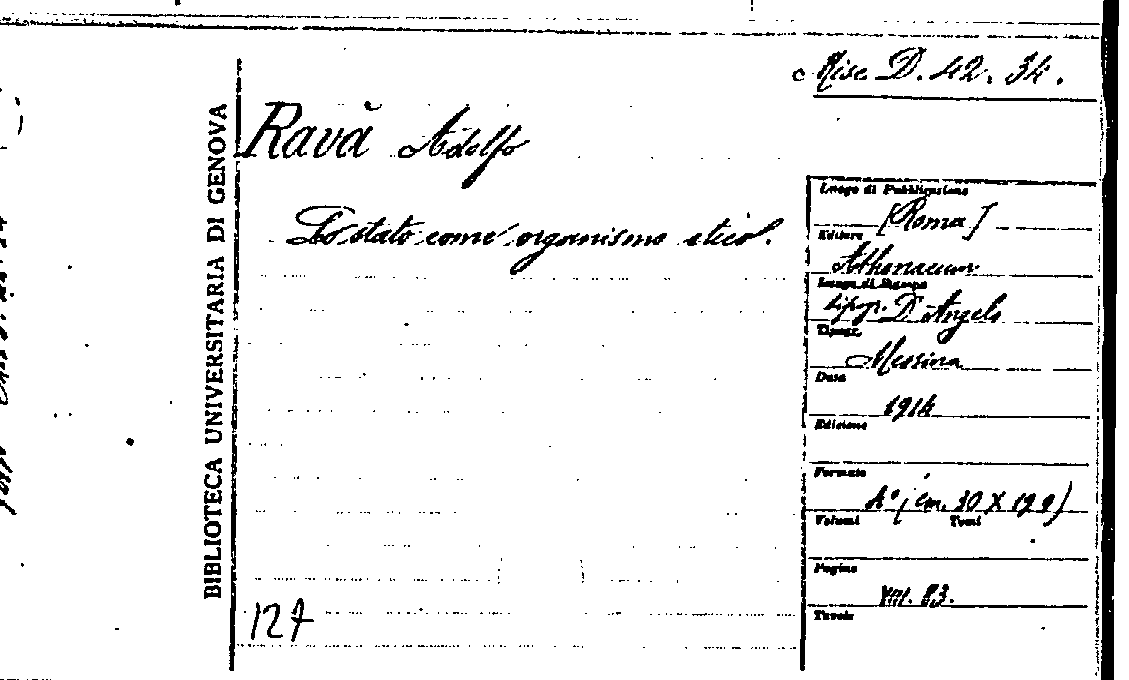 Misc D. 42. 34.
BIBLIOTECA UNIVERSITARIA DI GENOVA
Ravà Adolfo
Lo stato come organismo etico.
Luogo di Pubblicazione
[Roma]
Editore
Athenaeum
Luogo di Stampa
tipogr. D'Angelo
Tipogr.
Messina
Data
1914
Edizione
Formato
4° (cm. 30 X
Volumi Tomi
Pagine
VIII. 83.
Tavole
127